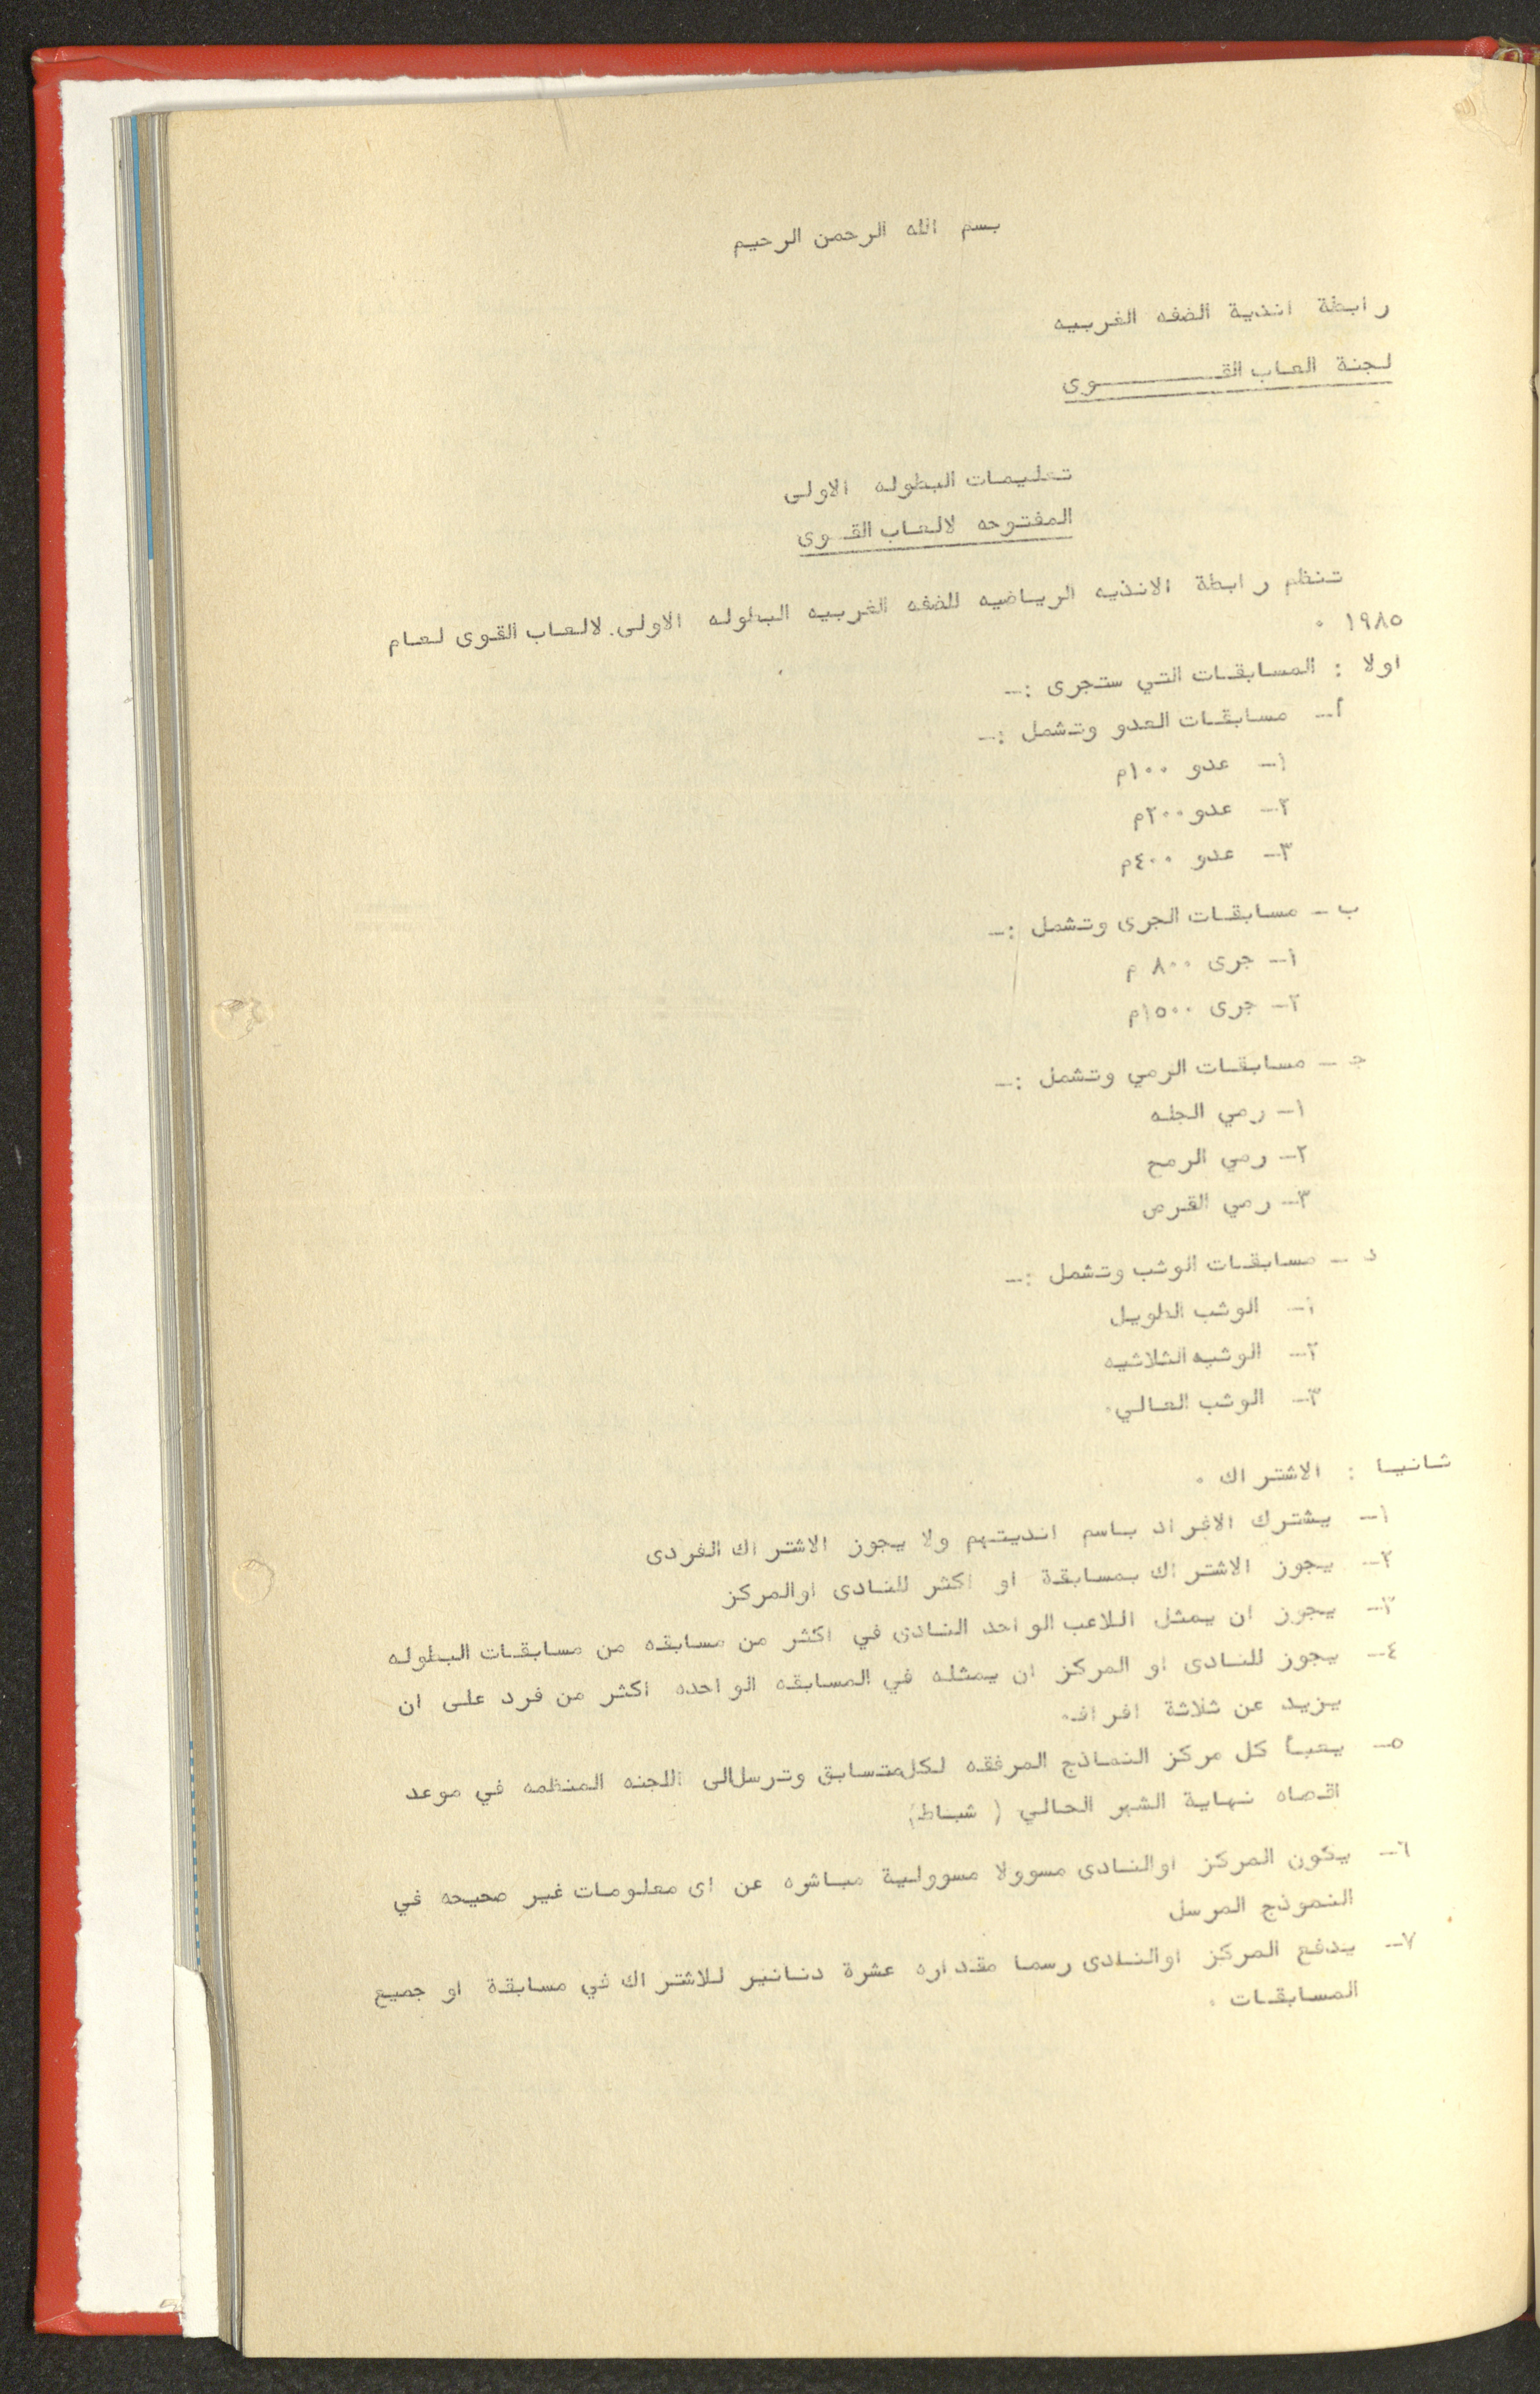 بسم الله الرحمن الرحيم
رابطة اندية الضفه الغربيه
لجنة العاب القـــــوى
تعليمات البطوله الاولى
المفتوحه لالعاب القـوى
تنظم رابطة الانديه الرياضيه للضفه الغربيه البطوله الاولى. لالعاب القوى لعام
١٩٨٥ ٠
اولا : المسابقات التي ستجرى :-
أ- مسابقات العدو وتشمل :-
١- عدو ١٠٠م
٢- عدو ٢٠٠م
٣- عدو ٤٠٠م
ب - مسابقات الجرى وتشمل :-
١- جرى ٨٠٠ م
٢- جرى ١٥٠٠م
ج - مسابقات الرمي وتشمل :-
١- رمي الجله
٢- رمي الرمح
٣- رمي القرص
د - مسابقات الوثب وتشمل :-
١- الوثب الطويل
٢- الوثبه الثلاثيه
٣- الوثب العالي٠
ثانيا : الاشتراك ٠
١- يشترك الافراد باسم انديتهم ولا يجوز الاشتراك الفردى
٢- يجوز الاشتراك بمسابقة او اكثر للنادى اوالمركز
٣- يجوز ان يمثل اللاعب الواحد النادى في اكثر من مسابقه من مسابقات البطوله
٤- يجوز للنادى او المركز ان يمثله في المسابقه الواحده اكثر من فرد على ان
يزيد عن ثلاثة افراد٠
٥- يعبأ كل مركز النماذج المرفقه لكل متسابق وترسل الى اللجنه المنظمه في موعد
اقصاه نهاية الشهر الحالي ( شباط)
٦- يكون المركز اوالنادى مسوولا مسوولية مباشره عن اى معلومات غير صحيحه في
النموذج المرسل
٧- يدفع المركز اوالنادى رسما مقداره عشرة دنانير للاشتراك في مسابقة او جميع
المسابقات ٠